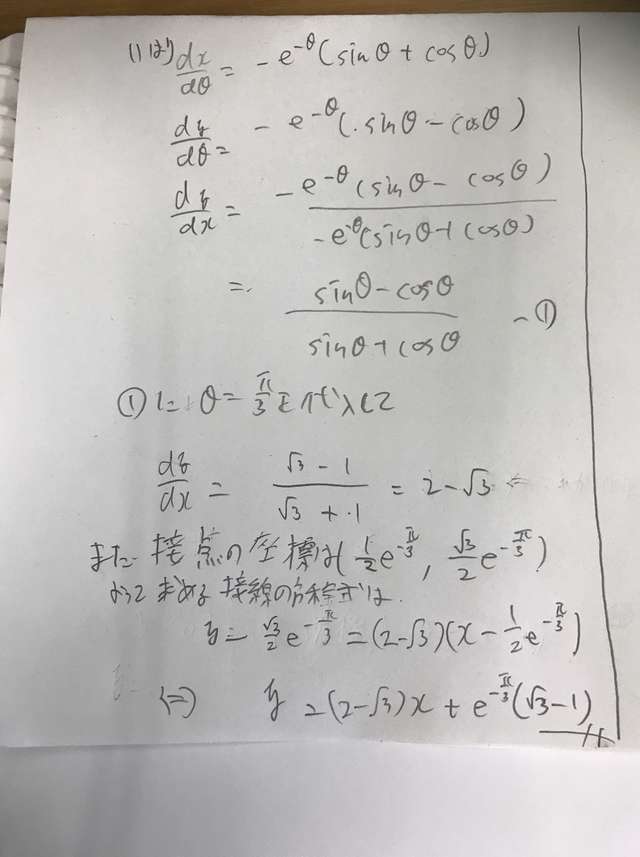 (1)より dx/dθ = -e^{-θ}(sinθ + cosθ)
dy/dθ = -e^{-θ}(sinθ - cosθ)
dy/dx = -e^{-θ}(sinθ - cosθ) / -e^{-θ}(sinθ + cosθ)
= sinθ - cosθ / sinθ + cosθ -①
①に θ = π/3 を代入して
dy/dx = √3 - 1 / √3 + 1 = 2 - √3
また 接点の座標は(1/2 e^{-π/3}, √3/2 e^{-π/3})
よって 求める接線の方程式は
y = √3/2 e^{-π/3} = (2-√3)(x - 1/2 e^{-π/3})
(=) y = (2-√3)x + e^{-π/3}(√3-1)